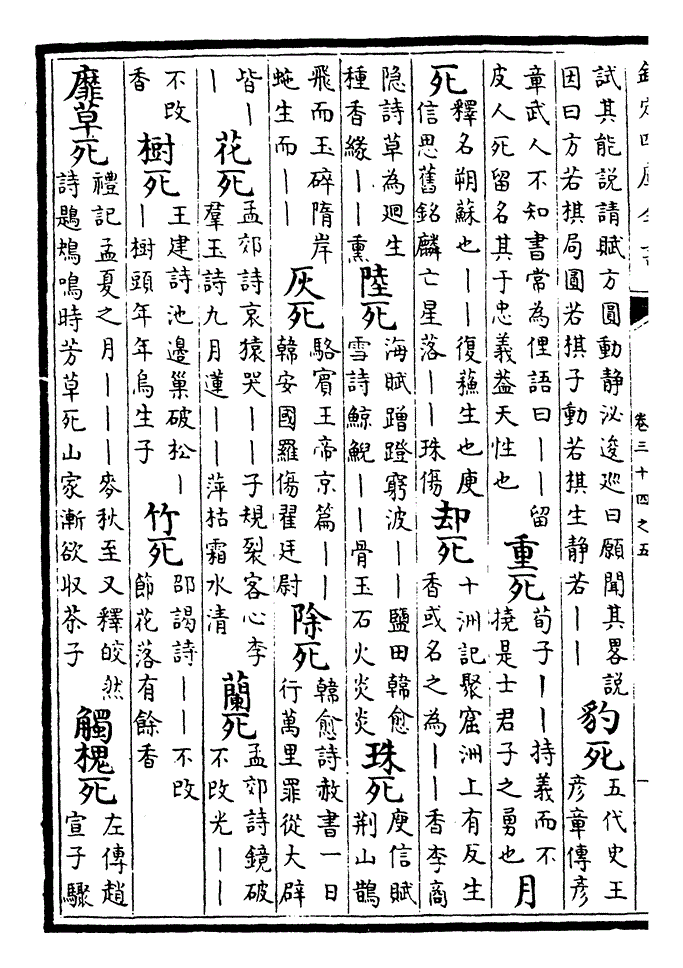 欽定四庫全書
卷三十四之五
試其能說請賦方圓動靜泌逡巡曰願聞其畧說
因曰方若棋局圓若棋子動若棋生靜若丨丨
豹死
五代史王
彦章傳彦
章武人不知書常為俚語曰丨丨留
皮人死留名其于忠義葢天性也
重死
荀子丨丨持義而不
撓是士君子之勇也
月
死
釋名朔蘇也丨丨復蘓生也庾
信思舊銘麟亡星落丨丨珠傷
却死
十洲記聚窟洲上有反生
香或名之為丨丨香李商
隐詩草為迴生
種香緣丨丨熏
陸死
海賦蹭蹬窮波丨丨鹽田韓愈
雪詩鯨鯢丨丨骨玉石火炎炎
珠死
庾信賦
荆山鵲
飛而玉碎隋岸
蚖生而丨丨
灰死
駱賓王帝京篇丨丨
韓安國羅傷翟廷尉
除死
韓愈詩赦書一日
行萬里罪從大辟
皆丨
丨
花死
孟郊詩哀猿哭丨丨子規裂客心李
羣玉詩九月蓮丨丨萍枯霜水清
蘭死
孟郊詩鏡破
不改光丨丨
不改
香
樹死
王建詩池邊巢破松丨
丨樹頭年年烏生子
竹死
邵謁詩丨丨不改
節花落有餘香
靡草死
禮記孟夏之月丨丨丨麥秋至又釋皎然
詩鶗鴂鳴時芳草死山家漸欲収茶子
觸槐死
左傳趙
宣子驟